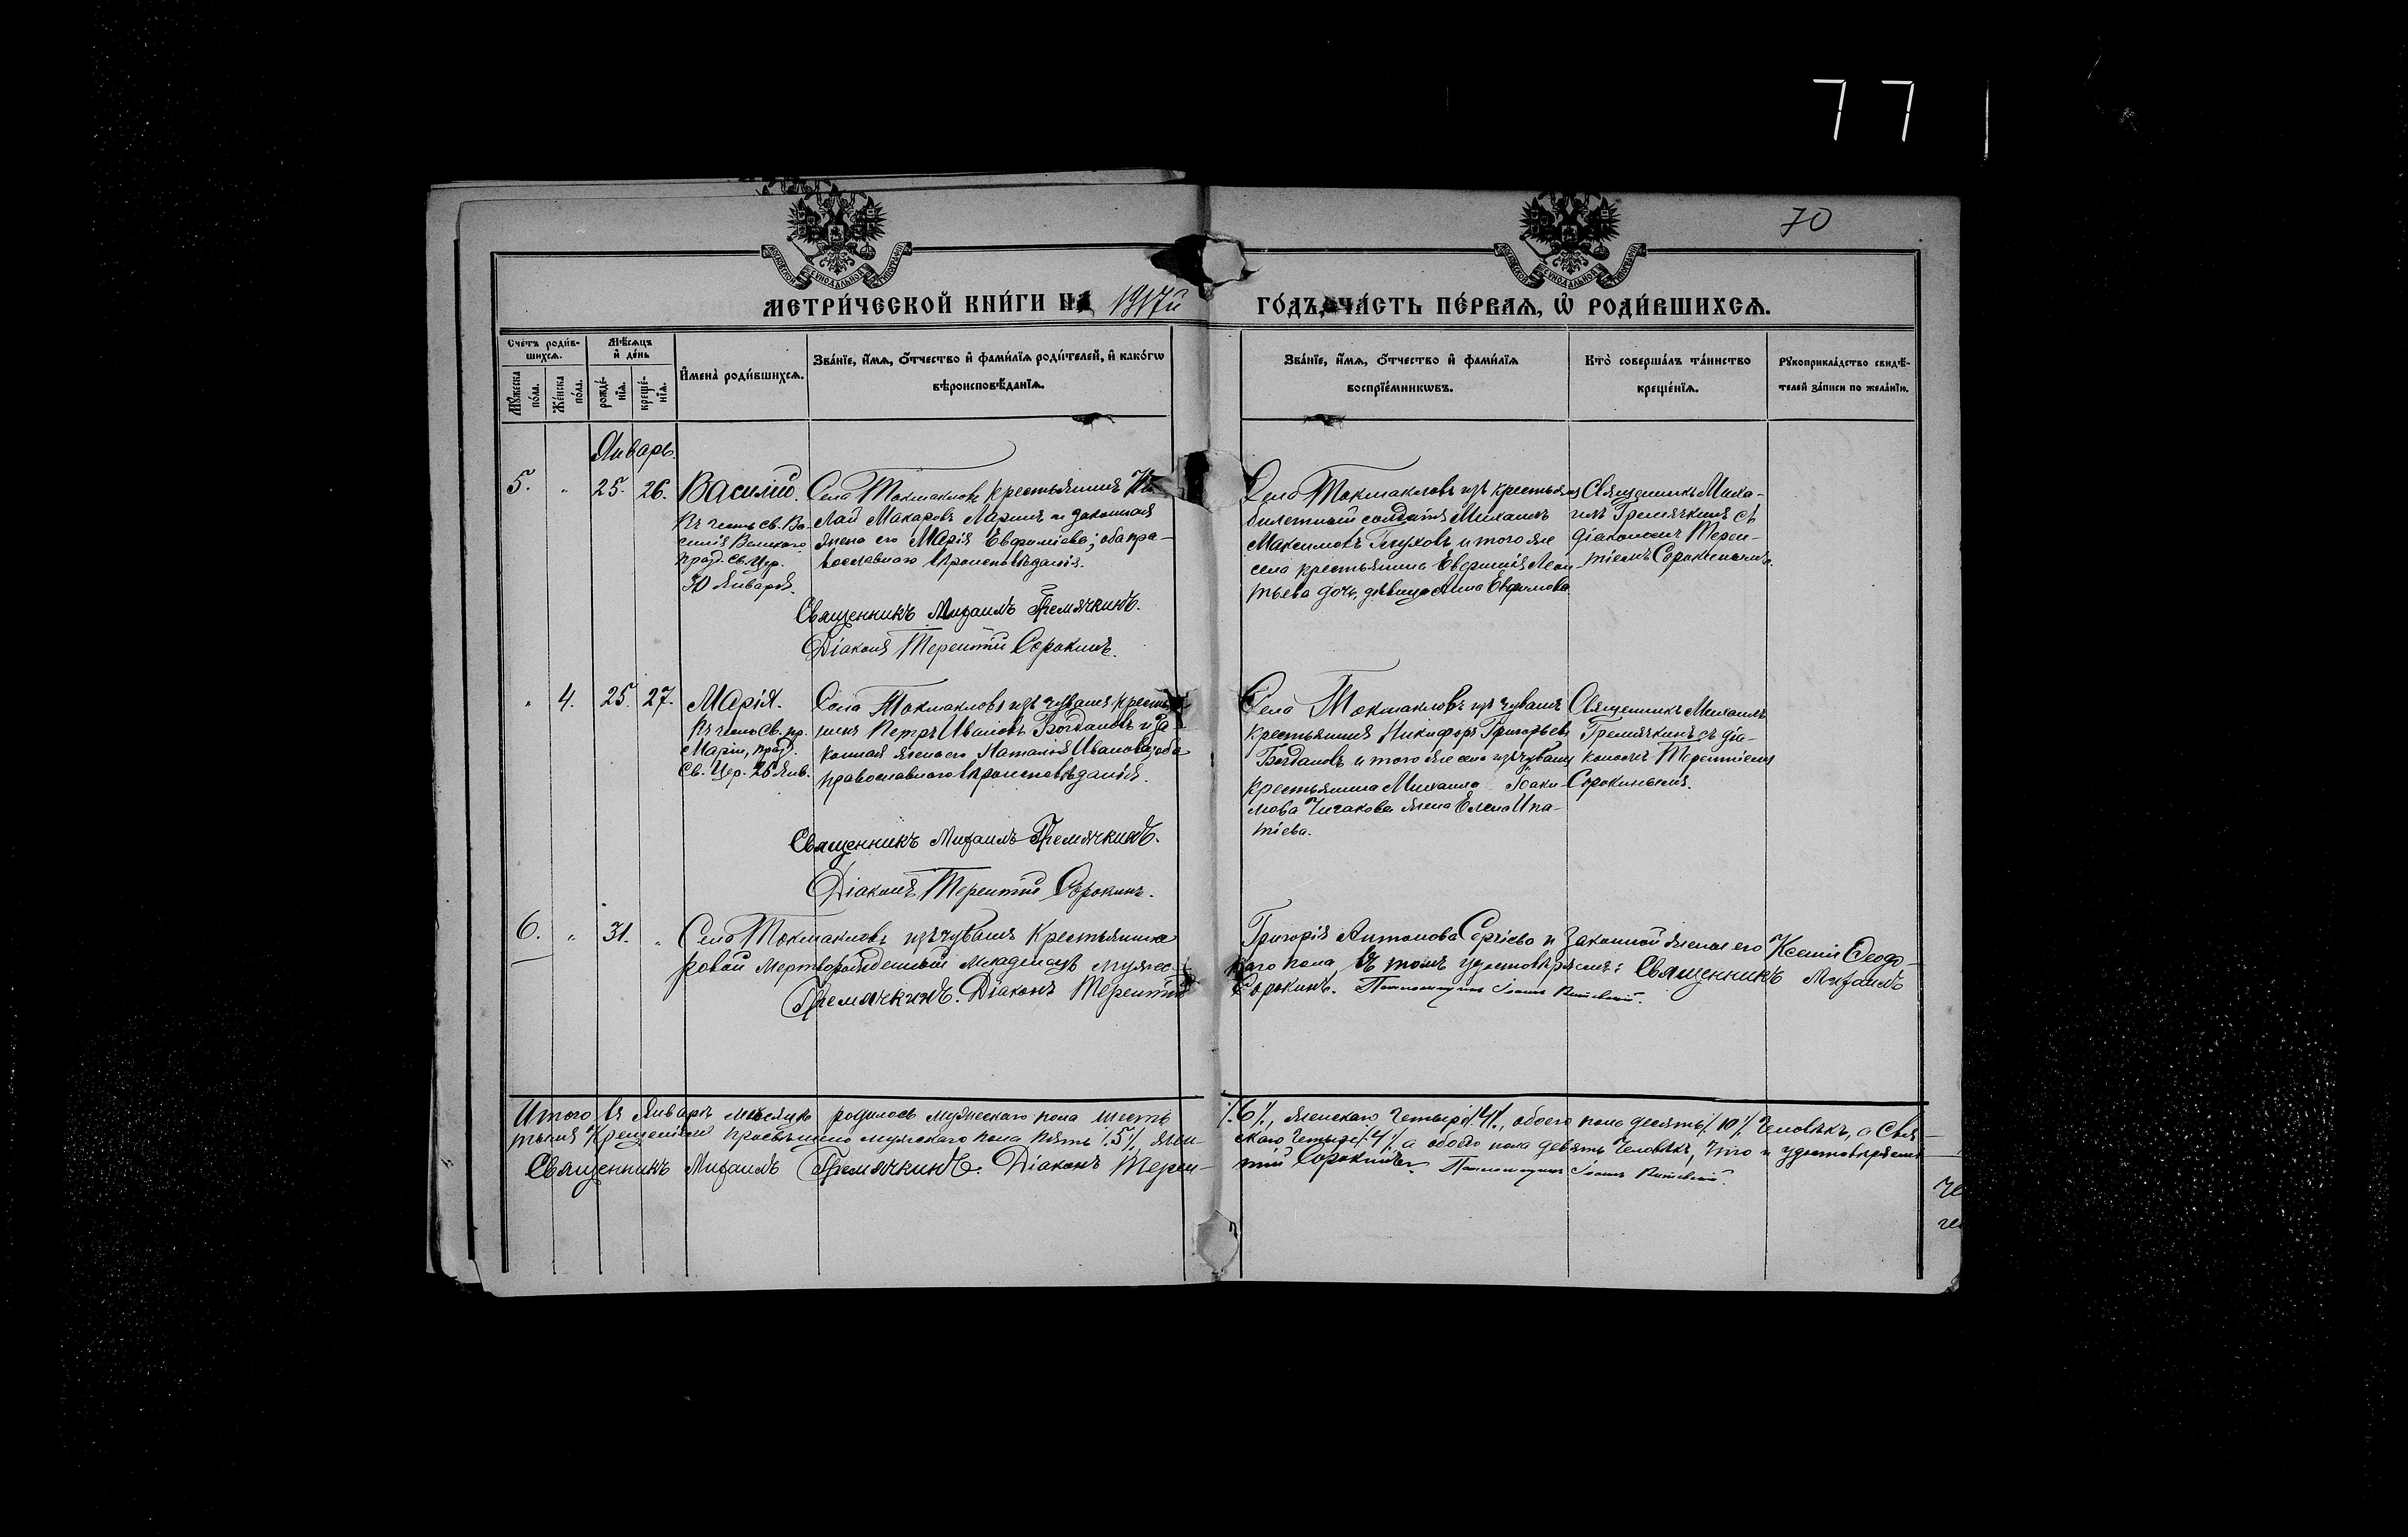 77
70
МОСКОВСКОЙ СѴНОДАЛЬНОЙ ТИПОГРАФІИ
МОСКОВСКОЙ СѴНОДАЛЬНОЙ ТИПОГРАФІИ
МЕТРИ́ЧЕСКОЙ КНИ́ГИ НА 1917й ГО́ДЪ, ЧА́СТЬ ПЕ́РВАЯ, Ѡ҆ РОДИ́ВШИХСѦ.
Сче́тъ роди́в-
шихсѧ.
Мѹ́жеска
по́ла.
Же́нска
по́ла.
Мѣ́сѧцъ
и҆ де́нь
рожде́-
нїѧ.
креще́-
нїѧ.
И҆мена̀ роди́вшихсѧ.
Зва́нїе, и҆́мѧ, ѻ҆́тчество и҆ фами́лїѧ роди́телей, и҆ како́гѡ
вѣроисповѣ́данїѧ.
Зва́нїе, и҆́мѧ, ѻ҆́тчество и҆ фами́лїѧ
воспрїе́мникѡвъ.
Кто̀ соверша́лъ та́инство
креще́нїѧ.
Рѹкоприкла́дство свидѣ́-
телей за́писи по жела́нїю.
Январь.
5. " 25. 26.
Василій.
Въ честь св. Ва-
силія Великаго
празд. св. Цер.
30 Января.
Села Токмакловъ крестьянинъ Ни
лай Макаровъ Ларинъ и законная
жена его Марія Евфиміева; оба пра-
вославнаго вѣроисповѣданія.
Священникъ Михаилъ Гремячкинъ.
Діаконъ Терентій Сорокинъ.
Села Токмакловъ изъ крестьянъ
билетный солдатъ Михаилъ
Максимовъ Глуховъ и того же
села крестьянина Евфимія Леон
тьева дочь, дѣвица Анна Евфимова
Священникъ Миха-
илъ Гремячкинъ съ
діакономъ Терен-
тіемъ Сорокинымъ.
" 4. 25. 27.
Марія.
Въ честь св. пр.
Маріи, празд.
св. Цер. 26 Янв.
Села Токмакловъ изъ чувашъ крестья
нинъ Петръ Ивановъ Богдановъ и за
конная жена его Наталія Иванова, оба
православнаго вѣроисповѣданія.
Священникъ Михаилъ Гремячкинъ.
Діаконъ Терентій Сорокинъ.
Села Токмакловъ изъ чувашъ
крестьянинъ Никифоръ Григорьевъ
Богдановъ и того же села изъ чувашъ
крестьянина Михаила Іоаки-
мова Чигакова жена Елена Ипа-
тіева.
Священникъ Михаилъ
Гремячкинъ съ діа-
кономъ Терентіемъ
Сорокинымъ.
6. " 31. "
Села Токмакловъ изъ чувашъ Крестьянина Григорія Антонова Сергѣева и Законной жены его Ксеніи Ѳеодо-
ровой мертворожденный младенецъ мужес-каго пола, въ томъ удостовѣряемъ: Священникъ Михаилъ
Гремячкинъ. Діаконъ Терентій Сорокинъ. Псаломщикъ Іоаннъ
Итого въ Январѣ мѣсяцѣ родилось мужескаго пола шесть %6%, женскаго четыре %4%, обоего пола десять %10% человѣкъ, а Свя-
тымъ Крещеніемъ просвѣщено мужескаго пола пять %5%, жен-скаго четыре %4%, а обоего пола девять человѣкъ, что и удостовѣряемъ
Священникъ Михаилъ Гремячкинъ. Діаконъ Терен-тій Сорокинъ. Псаломщикъ Іоаннъ